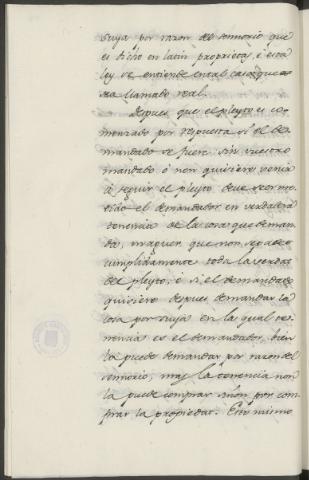 suya por razon del sennorio que
es dicho en latin proprietas, é esta
ley se entiende en tal caso que es
sea llamado real.
Despues que el pleyto es co-
menzado por respuesta si el de-
mandado se fuere sin nuestro
mandado ó non quisiere venir
á seguir el pleyto deve ser me-
tido el demandador en verdadera
tenencia de la cosa que deman-
da, maguer que non sepa de
cumplidamente toda la verdad
del pleyto, é si el demandado
quisiere despues demandar la
cosa por suya en la qual te-
nencia es el demandador, bien
la puede demandar por razon del
sennorio, mas la tenencia non
la puede comprar sinon por com-
prar la propiedat. Esto mismo